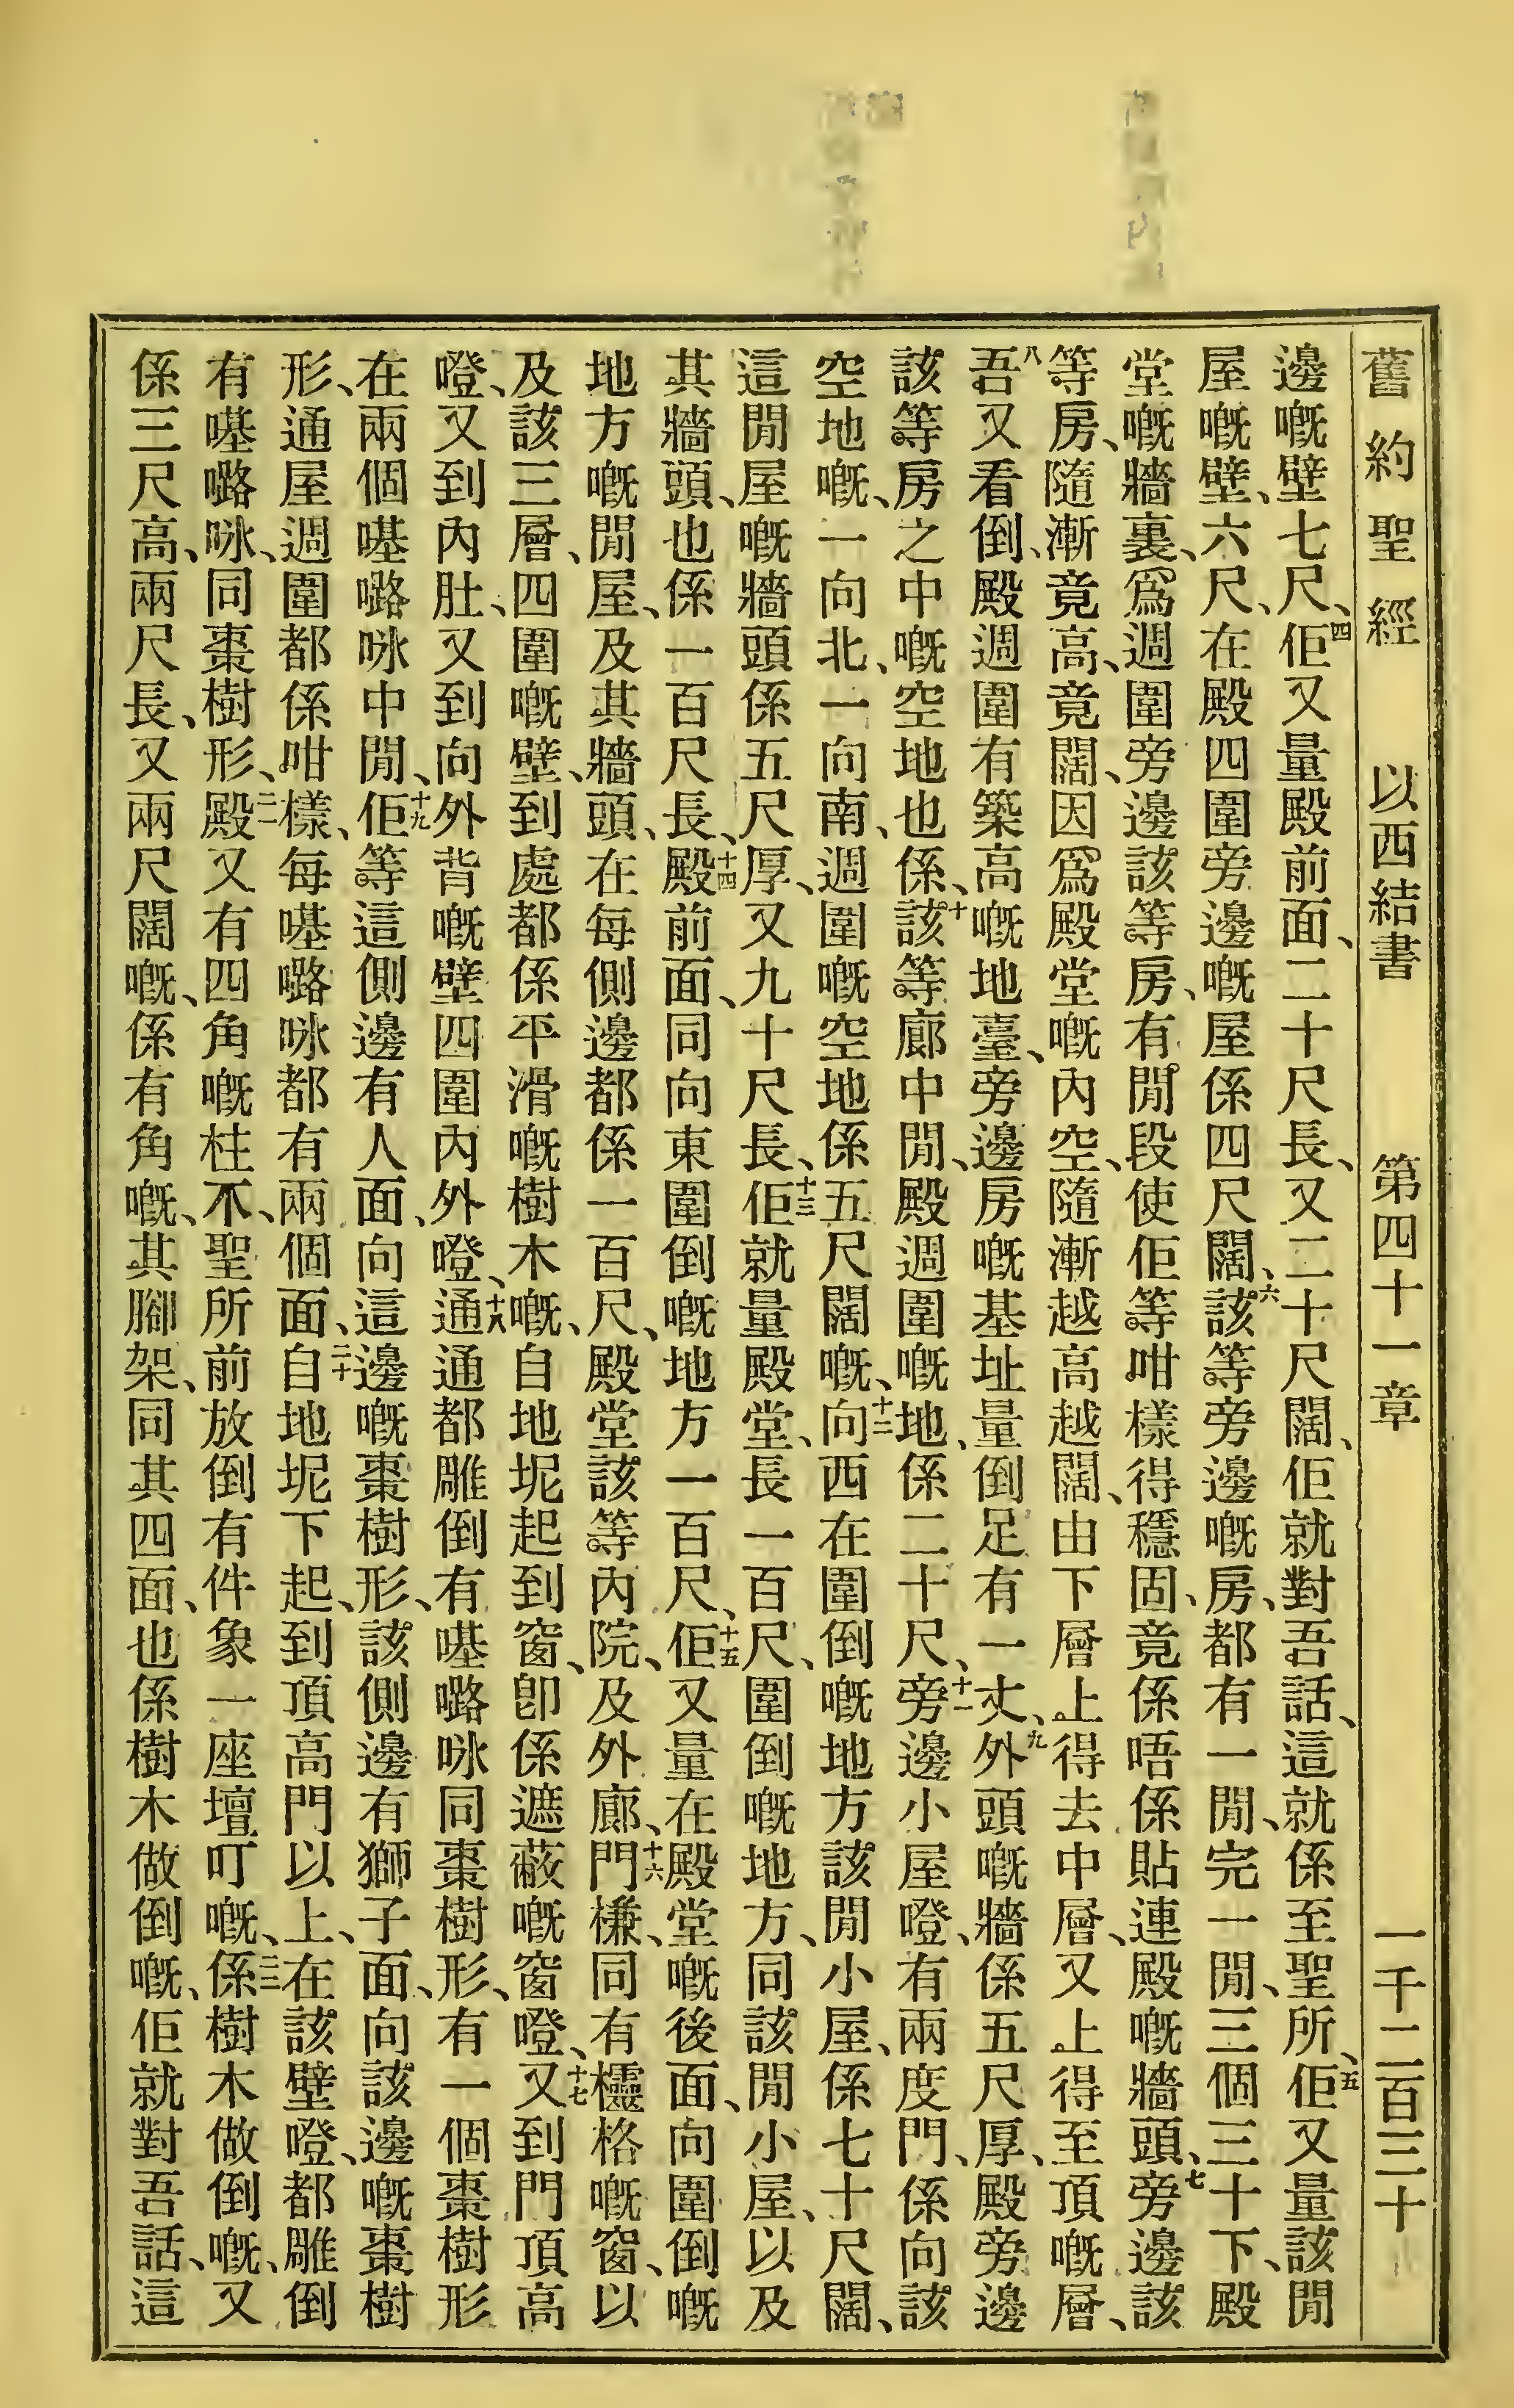 舊約聖經 以西結書 第四十一章 一千二百三十
邊嘅壁七尺、四佢又量殿前面、二十尺長、又二十尺闊、佢就對吾話、這就係至聖所、五佢又量該間
屋嘅壁、六尺、在殿四圍旁邊嘅屋係四尺闊、六該等旁邊嘅房、都有一間、完一間、三個三十下、殿
堂嘅牆裏、爲週圍旁邊該等房、有間段使佢等咁樣得穩固、竟係唔係貼連殿嘅牆頭、七旁邊該
等房、隨漸竟高、竟闊、因爲殿堂嘅內空、隨漸越高越闊、由下層上得去中層、又上得至頂嘅層、
八吾又看倒、殿週圍有築高嘅地臺、旁邊房嘅基址量倒足有一丈、九外頭嘅牆係五尺厚、殿旁邊
該等房之中嘅空地也係、十該等廊中間、殿週圍嘅地、係二十尺、十一旁邊小屋嘅、有兩度門、係向該
空地嘅、一向北、一向南、週圍嘅空地係五尺闊嘅、十二向西在圍倒嘅地方該間小屋、係七十尺闊、
這間屋嘅牆頭係五尺厚、又九十尺長、十三佢就量殿堂、長一百尺、圍倒嘅地方、同該間小屋、以及
其牆頭、也係一百尺長、十四殿前面、同向東圍倒嘅地方一百尺、十五佢又量在殿堂嘅後面、向圍倒嘅
地方嘅間屋、及其牆頭、在每側邊都係一百尺、殿堂該等內院、及外廊、十六門槏、同有櫺格嘅窗、以
及該三層、四圍嘅壁、到處都係平滑嘅樹木嘅、自地坭起到窗、卽係遮蔽嘅窗噔、十七又到門頂高
噔、又到內肚、又到向外背嘅壁四圍內外噔、十八通通都雕倒有㗱嚕咏同棗樹形、有一個棗樹形
在兩個㗱嚕咏中間、十九佢等這側邊有人面、向這邊嘅棗樹形、該側邊有獅子面、向該邊嘅棗樹
形、通屋週圍都係咁樣、每㗱嚕咏都有兩個面、二十自地坭下起、到頂高門以上、在該壁噔、都雕倒
有㗱嚕咏、同棗樹形、二一殿又有四角嘅柱不、聖所前放倒有件象一座壇叮嘅、二二係樹木做倒嘅、又
係三尺高、兩尺長、又兩尺闊嘅、係有角嘅、其腳架、同其四面、也係樹木做倒嘅、佢就對吾話、這